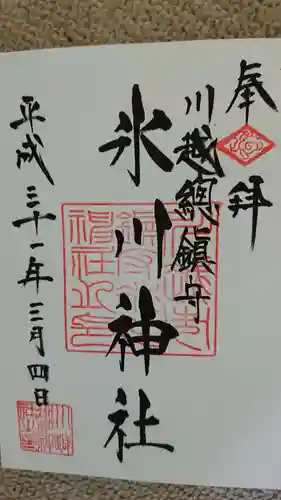 奉拝
川越總鎮守
氷川神社
平成三十一年三月四日